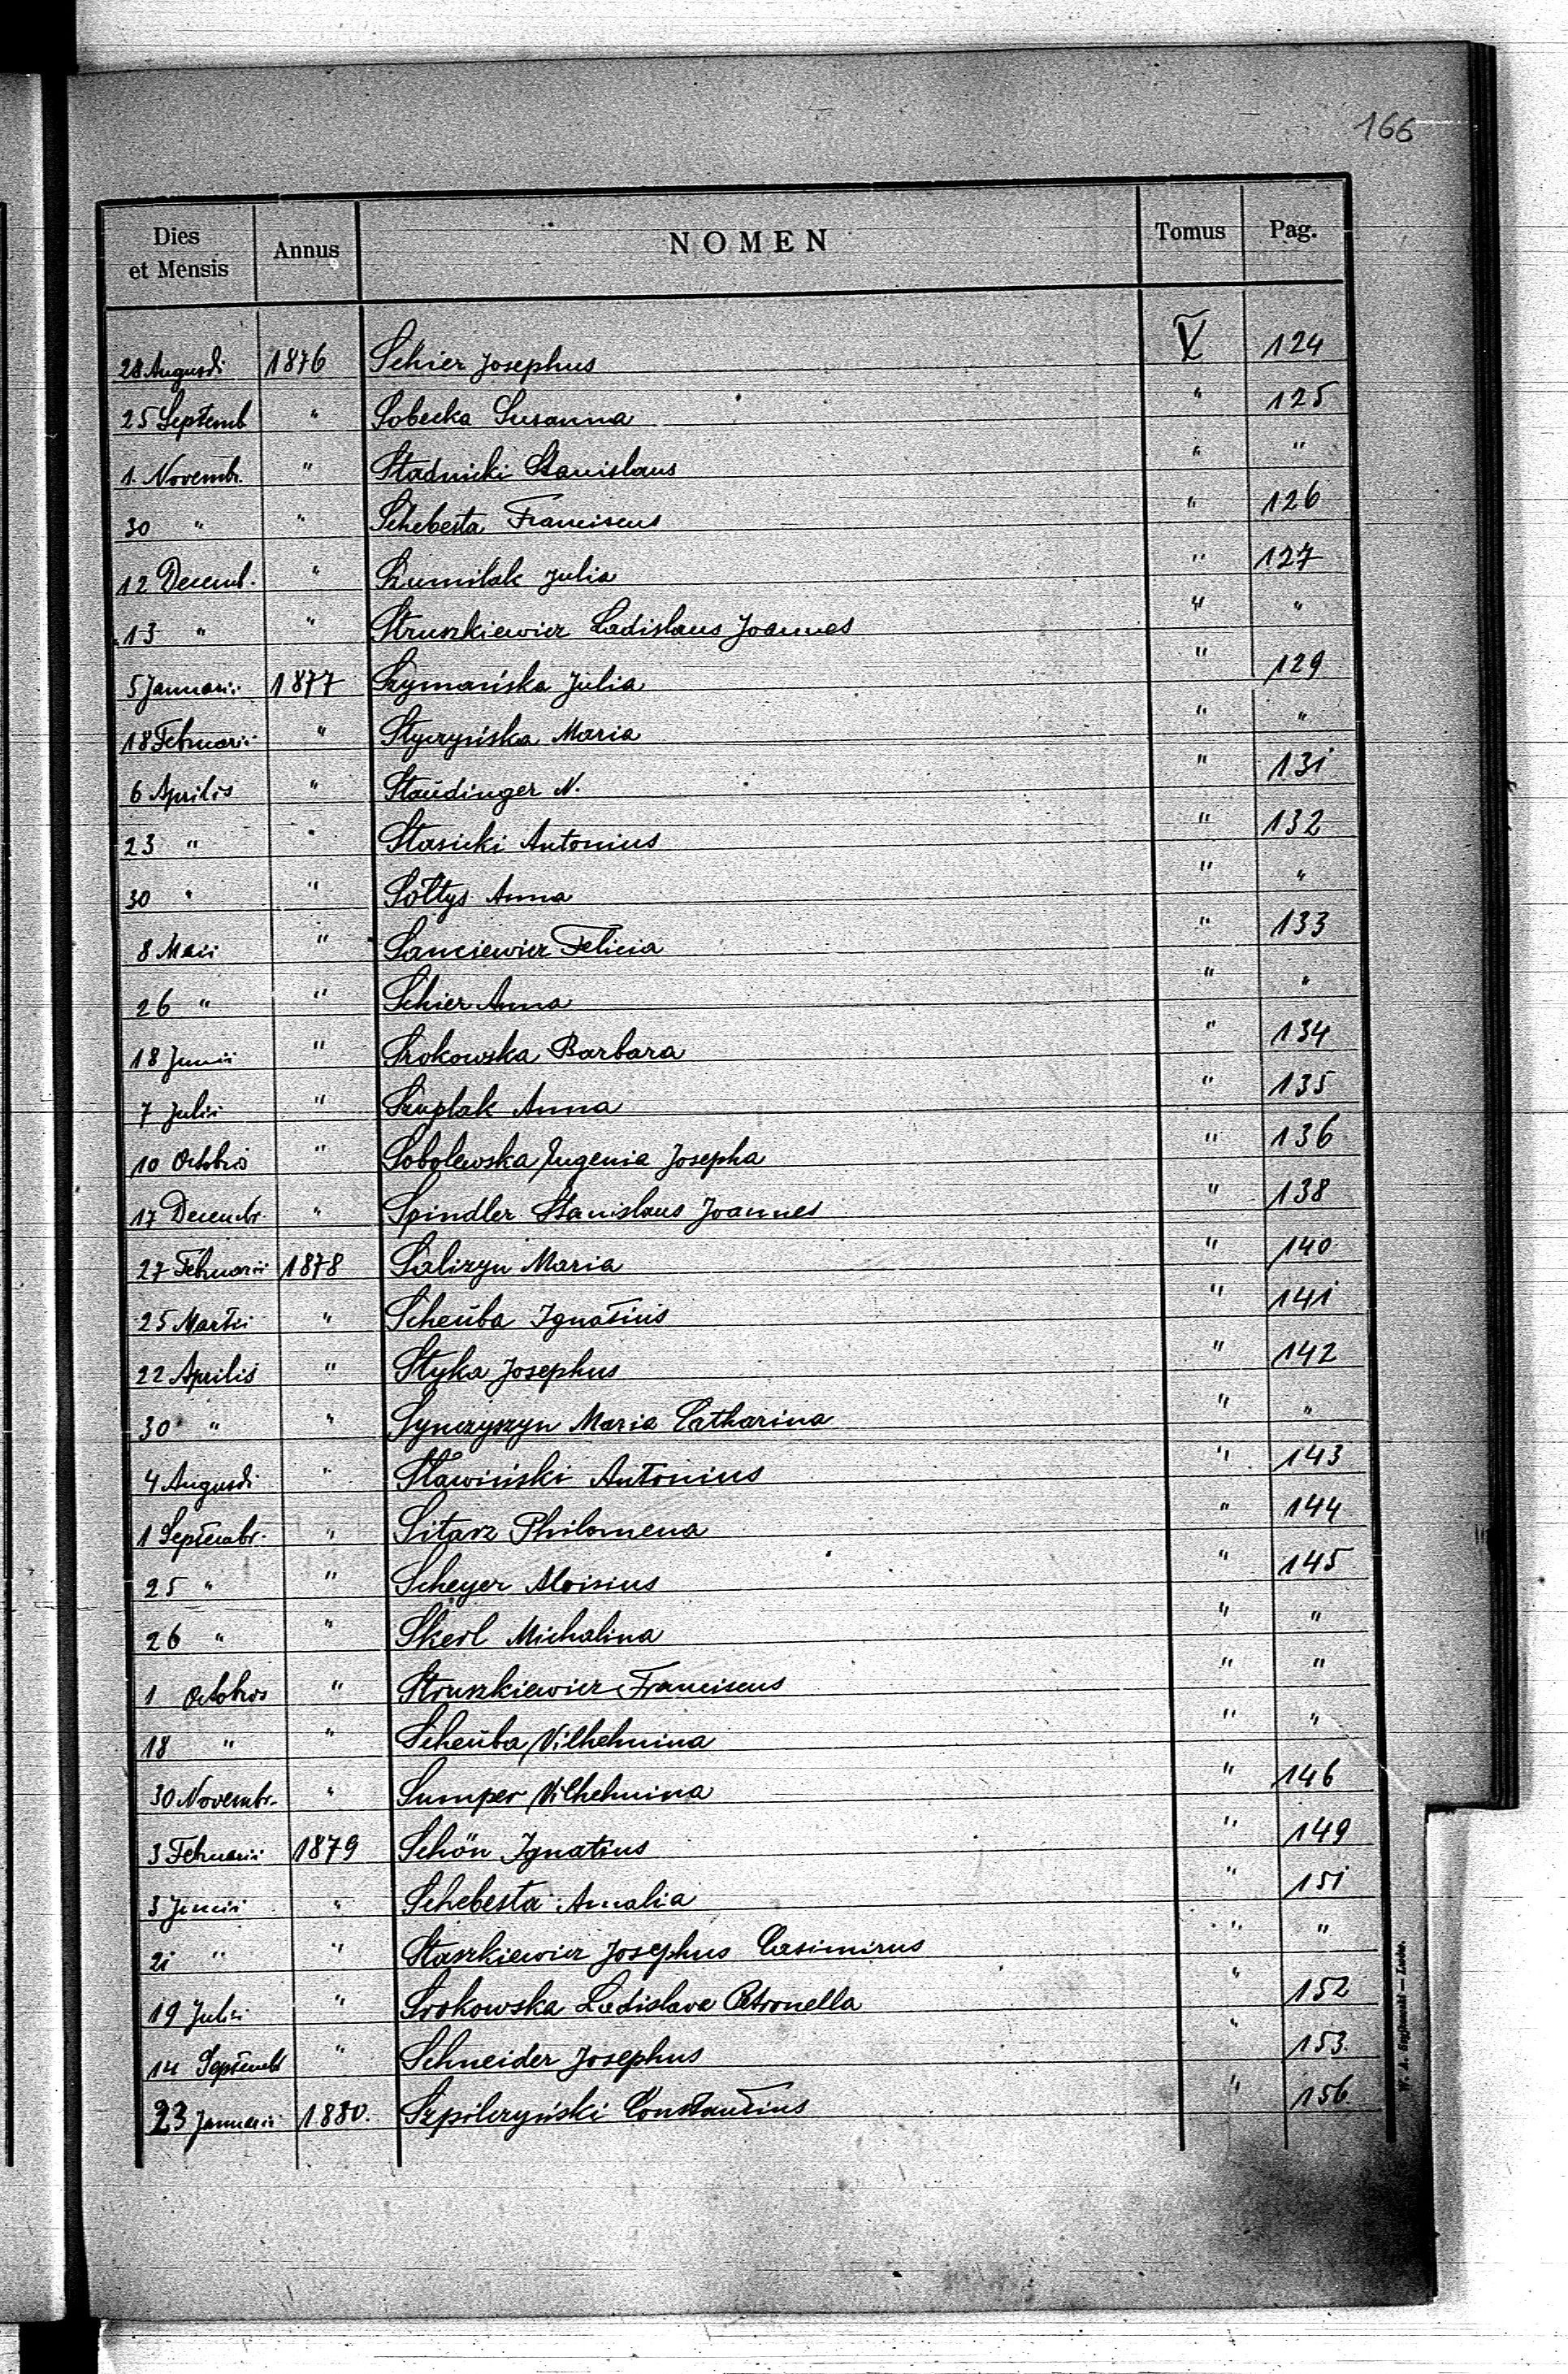 166
Dies et Mensis Annus NOMEN Tomus Pag.
28 Augusti 1876 Schier Josephus V 124
25 Septemb " Sobecka Susanna " 125
1. Novembr. " Stadnicki Stanislaus " "
30 " " Schebesta Franciscus " 126
12 Decemb. " Szumilak Julia " 127
13 " " Struszkiewicz Ladislaus Joannes " "
5 Januarii 1877 Szymańska Julia " 129
18 Februarii " Styczyńska Maria " "
6 Aprilis " Staŭdinger N. " 131
23 " " Stasicki Antonius " 132
30 " " Sołtys Anna " "
8 Maii " Sanciewicz Felicia " 133
26 " " Schier Anna " "
18 Junii " Srokowska Barbara " 134
7 Julii " Szuplak Anna " 135
10 Octobris " Sobolewska Eugenia Josepha " 136
17 Decembr. " Spindler Stanislaus Joannes " 138
27 Februarii 1878 Salizyn Maria " 140
25 Martii " Scheŭba Ignatius " 141
22 Aprilis " Styka Josephus " 142
30 " " Synczyszyn Maria Catharina " "
4 Augusti " Sławiński Antonius " 143
1 Septembr. " Sitarz Philomena " 144
25 " " Scheyer Aloisius " 145
26 " " Skerl Michalina " "
1 Octobris " Struszkiewicz Franciscus " "
18 " " Scheŭba Vilhelmina " "
30 Novembr. " Sumper Vilhelmina " 146
3 Februarii 1879 Schön Ignatius " 149
3 Junii " Schebesta Amalia " 151
21 " " Staszkiewicz Josephus Casimirus " "
19 Julii " Srokowska Ladislava Petronella " 152
14 Septembr " Schneider Josephus " 153.
23 Januarii 1880. Szpilczyński Constantius " 156.